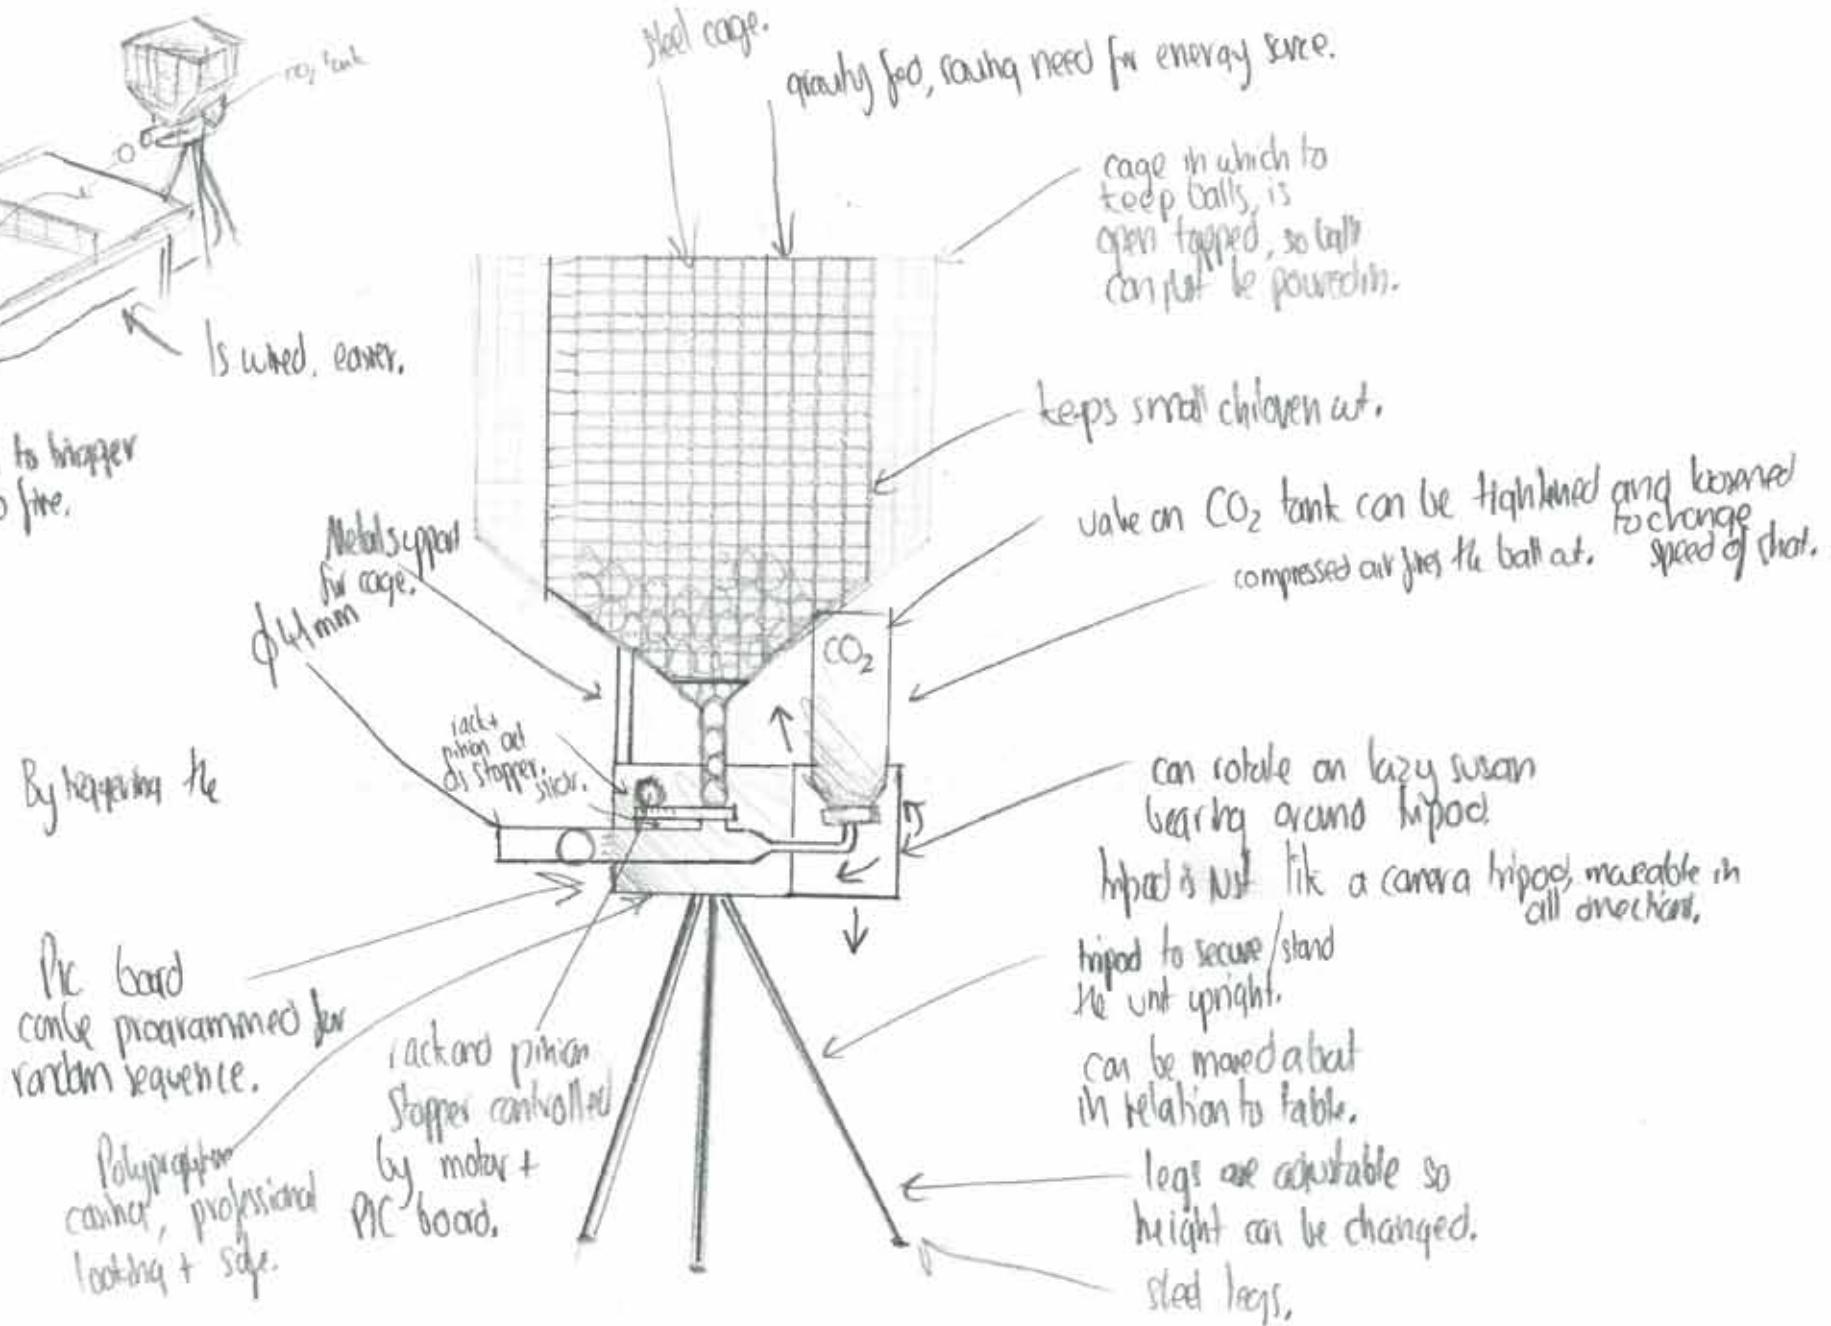 steel cage.
gravity fed, saving need for energy source.
tank
cage in which to
keep balls, is
open topped, so balls
can just be poured in.
Is wired, easier.
keeps small children out.
to trigger
fire.
valve on CO₂ tank can be tightened and loosened
to change
speed of shot.
compressed air fires the ball out.
Metal support
for cage.
ϕ41mm
CO₂
rack +
pinion act
as stopper.
By triggering the
can rotate on lazy susan
bearing around tripod.
tripod is just like a camera tripod, moveable in
all directions.
PIC board
can be programmed for
random sequence.
tripod to secure / stand
the unit upright.
can be moved about
in relation to table.
rack and pinion
stopper controlled
by motor +
PIC board.
Polypropylene
casing, professional
looking + safe.
legs are adjustable so
height can be changed.
steel legs.